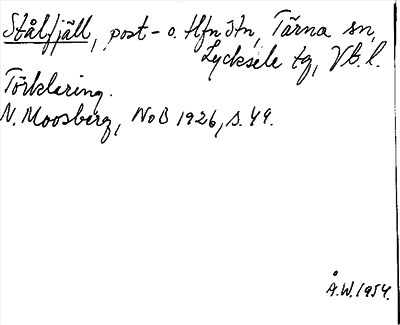 Stålfjäll, post- o. tlfnstn, Tärna sn,
Lycksele tg, Vb. l.
Törklering.
N. Moosberg, NoB 1926, s. 49.
Å.W. 1954.